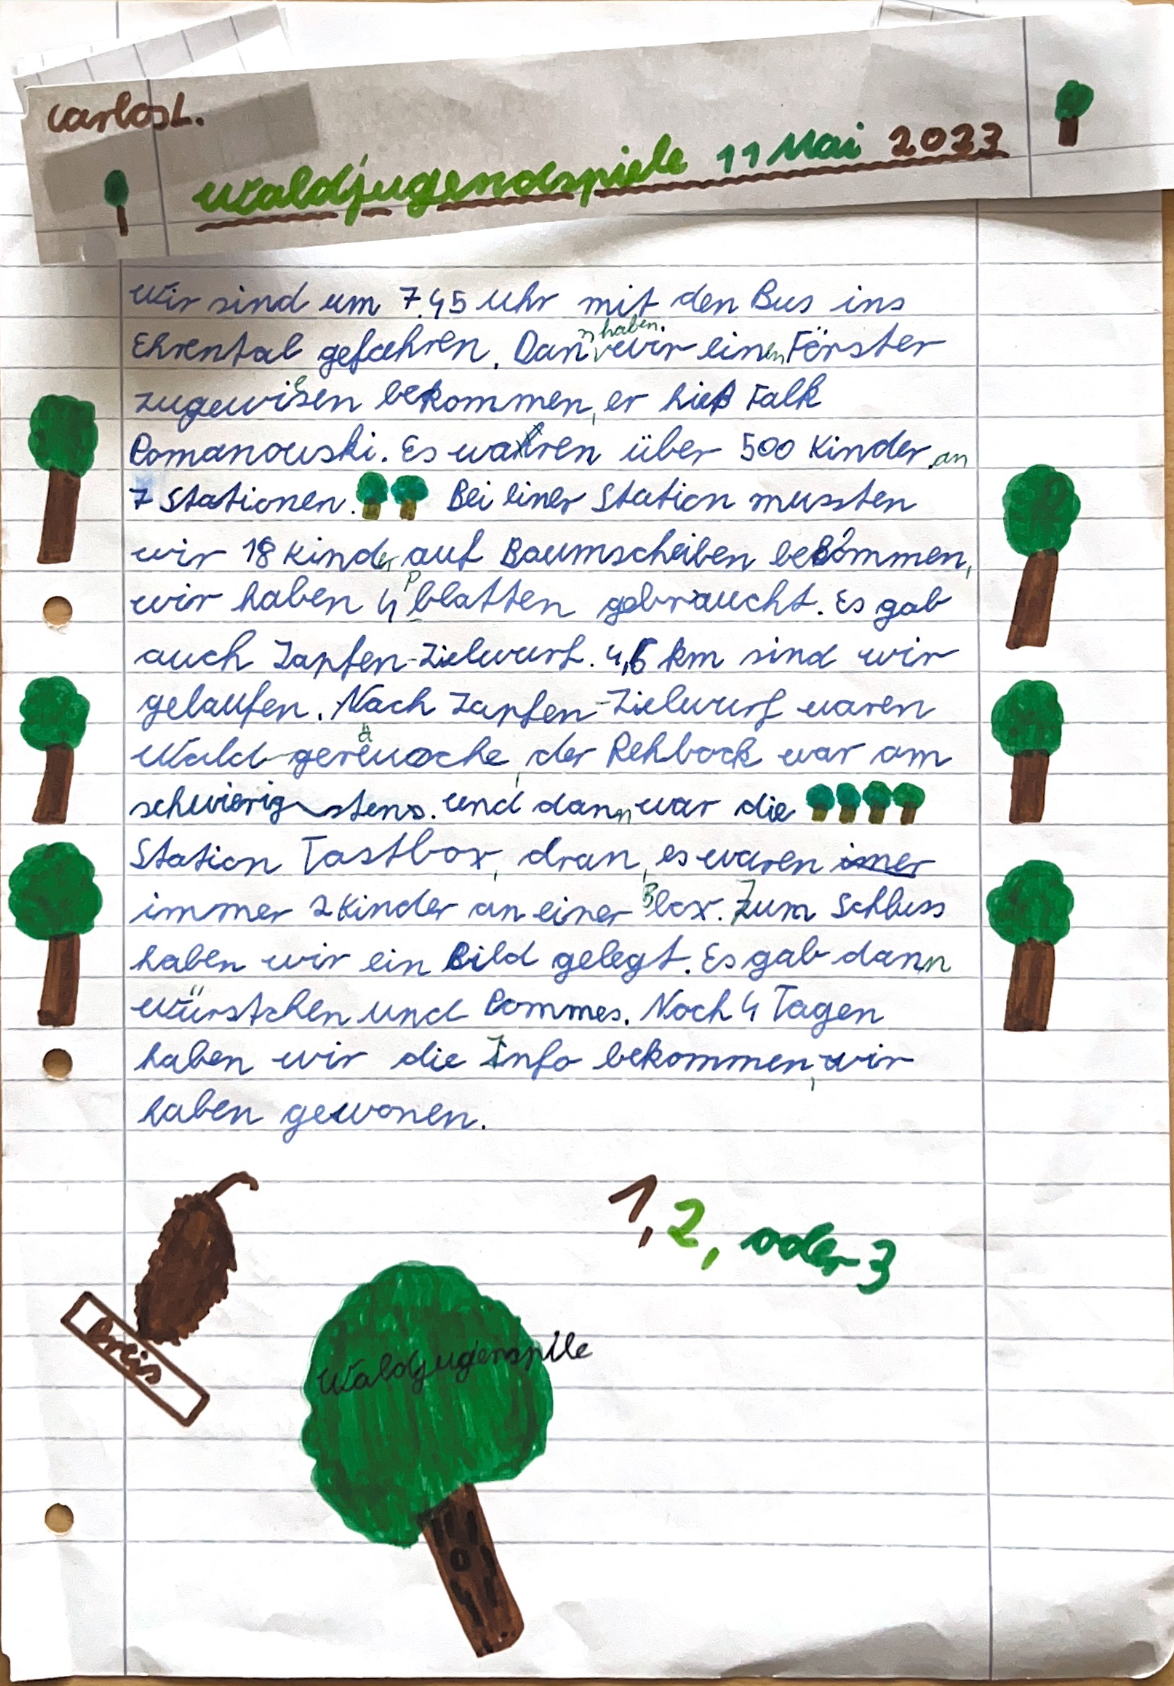 Carlos L.
Waldjugendspiele 11 Mai 2023
Wir sind um 7.45 Uhr mit den Bus ins
Ehrental gefahren. Dann haben wir einen Förster
zugewiesen bekommen, er hieß Falk
Romanowski. Es waren über 500 Kinder an
7 Stationen. Bei einer Station mussten
wir 18 Kinder auf Baumscheiben bekommen,
wir haben 4 Platten gebraucht. Es gab
auch Zapfen-Zielwurf. 4,6 km sind wir
gelaufen. Nach Zapfen-Zielwurf waren
Wald-geräuche, der Rehbock war am
schwierigstens. und dann war die
Station Tastbox, dran, es waren imer
immer 2 Kinder an einer Box. Zum Schluss
haben wir ein Bild gelegt. Es gab dann
Würstchen und Pommes. Nach 4 Tagen
haben wir die Info bekommen, wir
haben gewonen.
1, 2, oder 3
Preis
Waldjugenspile